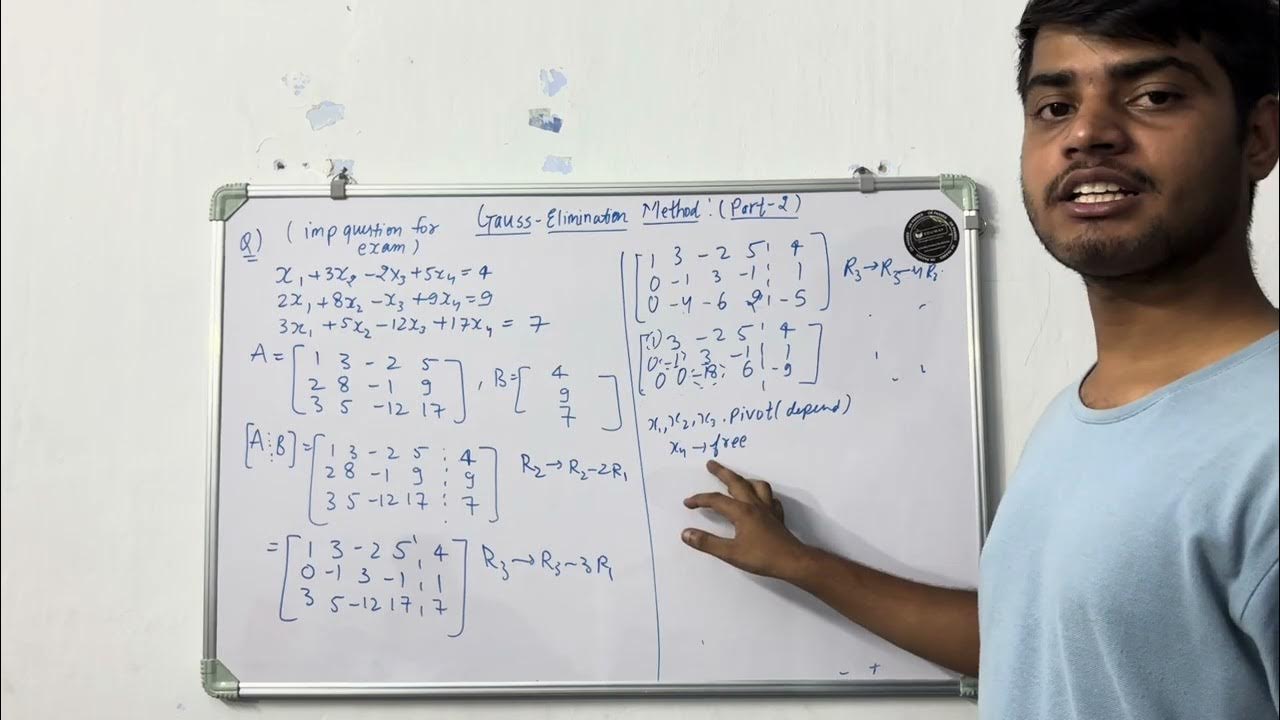 Gauss-Elimination Method: (Part-2)
Q) (imp question for
exam)
x₁ + 3x₂ - 2x₃ + 5x₄ = 4
2x₁ + 8x₂ - x₃ + 9x₄ = 9
3x₁ + 5x₂ - 12x₃ + 17x₄ = 7
A = [1 3 -2 5
2 8 -1 9
3 5 -12 17] , B = [4
9
7]
[A ⋮ B] = [1 3 -2 5 ⋮ 4
2 8 -1 9 ⋮ 9
3 5 -12 17 ⋮ 7] R₂ → R₂ - 2R₁
= [1 3 -2 5 ⋮ 4
0 -1 3 -1 ⋮ 1
3 5 -12 17 ⋮ 7] R₃ → R₃ - 3R₁
[1 3 -2 5 ⋮ 4
0 -1 3 -1 ⋮ 1
0 -4 -6 2 ⋮ -5] R₃ → R₃ - 4R₃
[(1) 3 -2 5 ⋮ 4
0 -1 3 -1 ⋮ 1
0 0 -18 6 ⋮ -9]
x₁, x₂, x₃ . Pivot (depend)
x₄ → free
- +